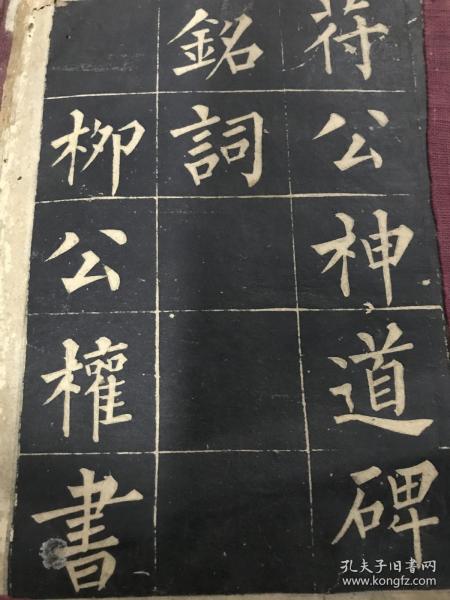 苻公神道碑
銘詞
柳公權書
孔夫子旧书网
www.kongfz.com